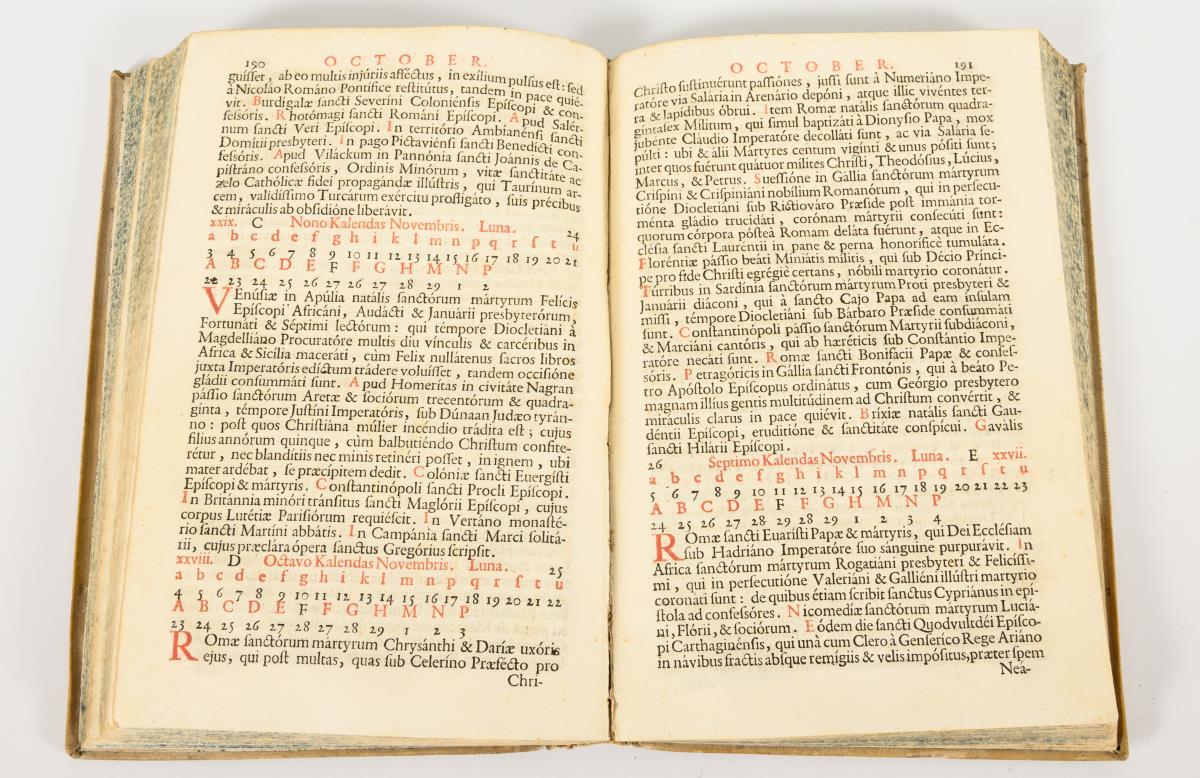 190 OCTOBER.
guíſſet, ab eo multis injúriis afféctus, in exílium pulſus eſt: ſed
à Nicoláo Románo Pontífice reſtitútus, tandem in pace quié-
vit. Burdígalæ ſancti Severíni Coloniénſis Epíſcopi & con-
feſſóris. Rhotómagi ſancti Románi Epíſcopi. Apud Salér-
num ſancti Veri Epíſcopi. In território Ambianénſi ſancti
Domítii presbyteri. In pago Pictaviénſi ſancti Benedícti con-
feſſóris. Apud Viláckum in Pannónia ſancti Joánnis de Ca-
piſtráno confeſſóris, Ordinis Minórum, vitæ ſanctitáte ac
zelo Cathólicæ fidei propagándæ illúſtris, qui Taurínum ar-
cem, validíſſimo Turcárum exércitu profligáto, ſuis précibus
& miráculis ab obſidióne liberávit.
xxix. C Nono Kalendas Novembris. Luna. 24
a b c d e f g h i k l m n p q r ſ t u
3 4 5 6 7 8 9 10 11 12 13 14 15 16 17 18 19 20 21
A B C D E F F G H M N P
22 23 24 25 26 27 26 27 28 29 1 2
VEnúſiæ in Apúlia natális ſanctórum mártyrum Felícis
Epíſcopi Africáni, Audácti & Januárii presbyterórum,
Fortunáti & Séptimi lectórum: qui témpore Diocletiáni à
Magdelliáno Procuratóre multis diu vínculis & carcéribus in
Africa & Sicília maceráti, cùm Felix nullátenus ſacros libros
juxta Imperatóris edíctum trádere voluíſſet, tandem occiſióne
gládii conſummáti ſunt. Apud Homerítas in civitáte Nagran
páſſio ſanctórum Aretæ & ſociórum trecentórum & quadra-
gínta, témpore Juſtíni Imperatóris, ſub Dúnaan Judæo tyrán-
no: poſt quos Chriſtiána múlier incéndio trádita eſt; cujus
fílius annórum quinque, cùm balbutiéndo Chriſtum confite-
rétur, nec blandítiis nec minis retinéri poſſet, in ignem, ubi
mater ardébat, ſe præcípitem dedit. Colóniæ ſancti Evergíſti
Epíſcopi & mártyris. Conſtantinópoli ſancti Procli Epíſcopi.
In Británnia minóri tránſitus ſancti Maglórii Epíſcopi, cujus
corpus Lutétiæ Pariſiórum requiéſcit. In Vertáno monaſté-
rio ſancti Martíni abbátis. In Campánia ſancti Marci ſolitá-
rii, cujus præclára ópera ſanctus Gregórius ſcripſit.
xxviii. D Octavo Kalendas Novembris. Luna. 25
a b c d e f g h i k l m n p q r ſ t u
4 5 6 7 8 9 10 11 12 13 14 15 16 17 18 19 20 21 22
A B C D E F F G H M N P
23 24 25 26 27 28 27 28 29 1 2 3
ROmæ ſanctórum mártyrum Chryſánthi & Daríæ uxóris
ejus, qui poſt multas, quas ſub Celeríno Præfécto pro
Chri-
OCTOBER. 191
Chriſto ſuſtinuérunt paſſiónes, juſſi ſunt à Numeriáno Impe-
ratóre via Salária in Arenário depóni, atque illic vivéntes ter-
ra & lapídibus óbrui. Item Romæ natális ſanctórum quadra-
gintaſex Mílitum, qui ſimul baptizáti à Dionyſio Papa, mox
jubente Cláudio Imperatóre decolláti ſunt, ac via Salária ſe-
púlti: ubi & álii Mártyres centum vigínti & unus póſiti ſunt;
inter quos fuérunt quátuor mílites Chriſti, Theodóſius, Lúcius,
Marcus, & Petrus. Sueſſióne in Gállia ſanctórum mártyrum
Criſpíni & Criſpiniáni nobílium Romanórum, qui in perſecu-
tióne Diocletiáni ſub Rictiováro Præſide poſt immánia tor-
menta gládio trucidáti, corónam mártyrii conſecúti ſunt:
quorum córpora póſteà Romam deláta fuérunt, atque in Ec-
cléſia ſancti Lauréntii in pane & perna honoríficè tumuláta.
Floréntiæ páſſio beáti Miniátis mílitis, qui ſub Décio Prínci-
pe pro fide Chriſti egrégiè certans, nóbili martyrio coronátur.
Túrribus in Sardínia ſanctórum mártyrum Proti presbyteri &
Januárii diáconi, qui à ſancto Cajo Papa ad eam ínſulam
miſſi, témpore Diocletiáni ſub Bárbaro Præſide conſummáti
ſunt. Conſtantinópoli páſſio ſanctórum Martyrii ſubdiáconi,
& Marciáni cantóris, qui ab hæréticis ſub Conſtántio Impe-
ratóre necáti ſunt. Romæ ſancti Bonifacii Papæ & confeſ-
ſóris. Petragóricis in Gállia ſancti Frontónis, qui à beáto Pe-
tro Apóſtolo Epíſcopus ordinátus, cum Geórgio presbytero
magnam illíus gentis multitúdinem ad Chriſtum convértit, &
miráculis clarus in pace quiévit. Bríxiæ natális ſancti Gau-
déntii Epíſcopi, eruditióne & ſanctitáte conſpícui. Gavális
ſancti Hilárii Epíſcopi.
26 Septimo Kalendas Novembris. Luna. E xxvii.
a b c d e f g h i k l m n p q r ſ t u
5 6 7 8 9 10 11 12 13 14 15 16 17 18 19 20 21 22 23
A B C D E F F G H M N P
24 25 26 27 28 29 28 29 1 2 3 4
ROmæ ſancti Euaríſti Papæ & mártyris, qui Dei Eccléſiam
ſub Hadriáno Imperatóre ſuo sánguine purpurávit. In
Africa ſanctórum mártyrum Rogatiáni presbyteri & Felicíſſi-
mi, qui in perſecutióne Valeriáni & Galliéni illúſtri martyrio
coronáti ſunt: de quibus étiam ſcribit ſanctus Cypriánus in epí-
ſtola ad confeſſóres. Nicomedíæ ſanctórum mártyrum Luciá-
ni, Flórii, & ſociórum. Eódem die ſancti Quodvultdéi Epíſco-
pi Carthaginénſis, qui unà cum Clero à Genſeríco Rege Ariáno
in návibus fractis abſque remígiis & velis impóſitus, præter ſpem
Nea-